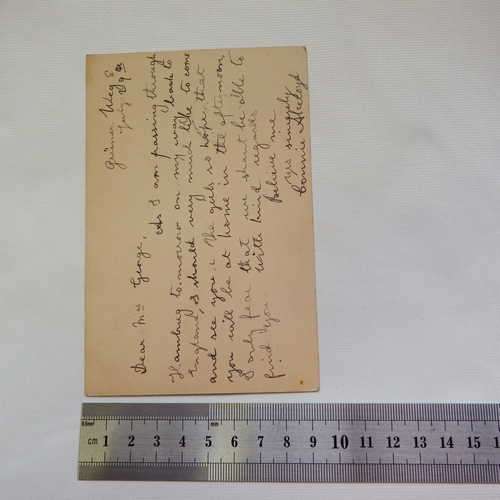 Grüner Weg 8
July 29th
Dear Mrs George,
As I am passing through
Hamburg to-morrow on my way back to
England, I should very much like to come
and see you & the girls, so hope that
you will be at home in the afternoon,
I only fear that we shan't be able to
find you. With kind regards
believe me
yrs sincerely
Connie
0.5mm mm
cm 1 2 3 4 5 6 7 8 9 10 11 12 13 14 15 1